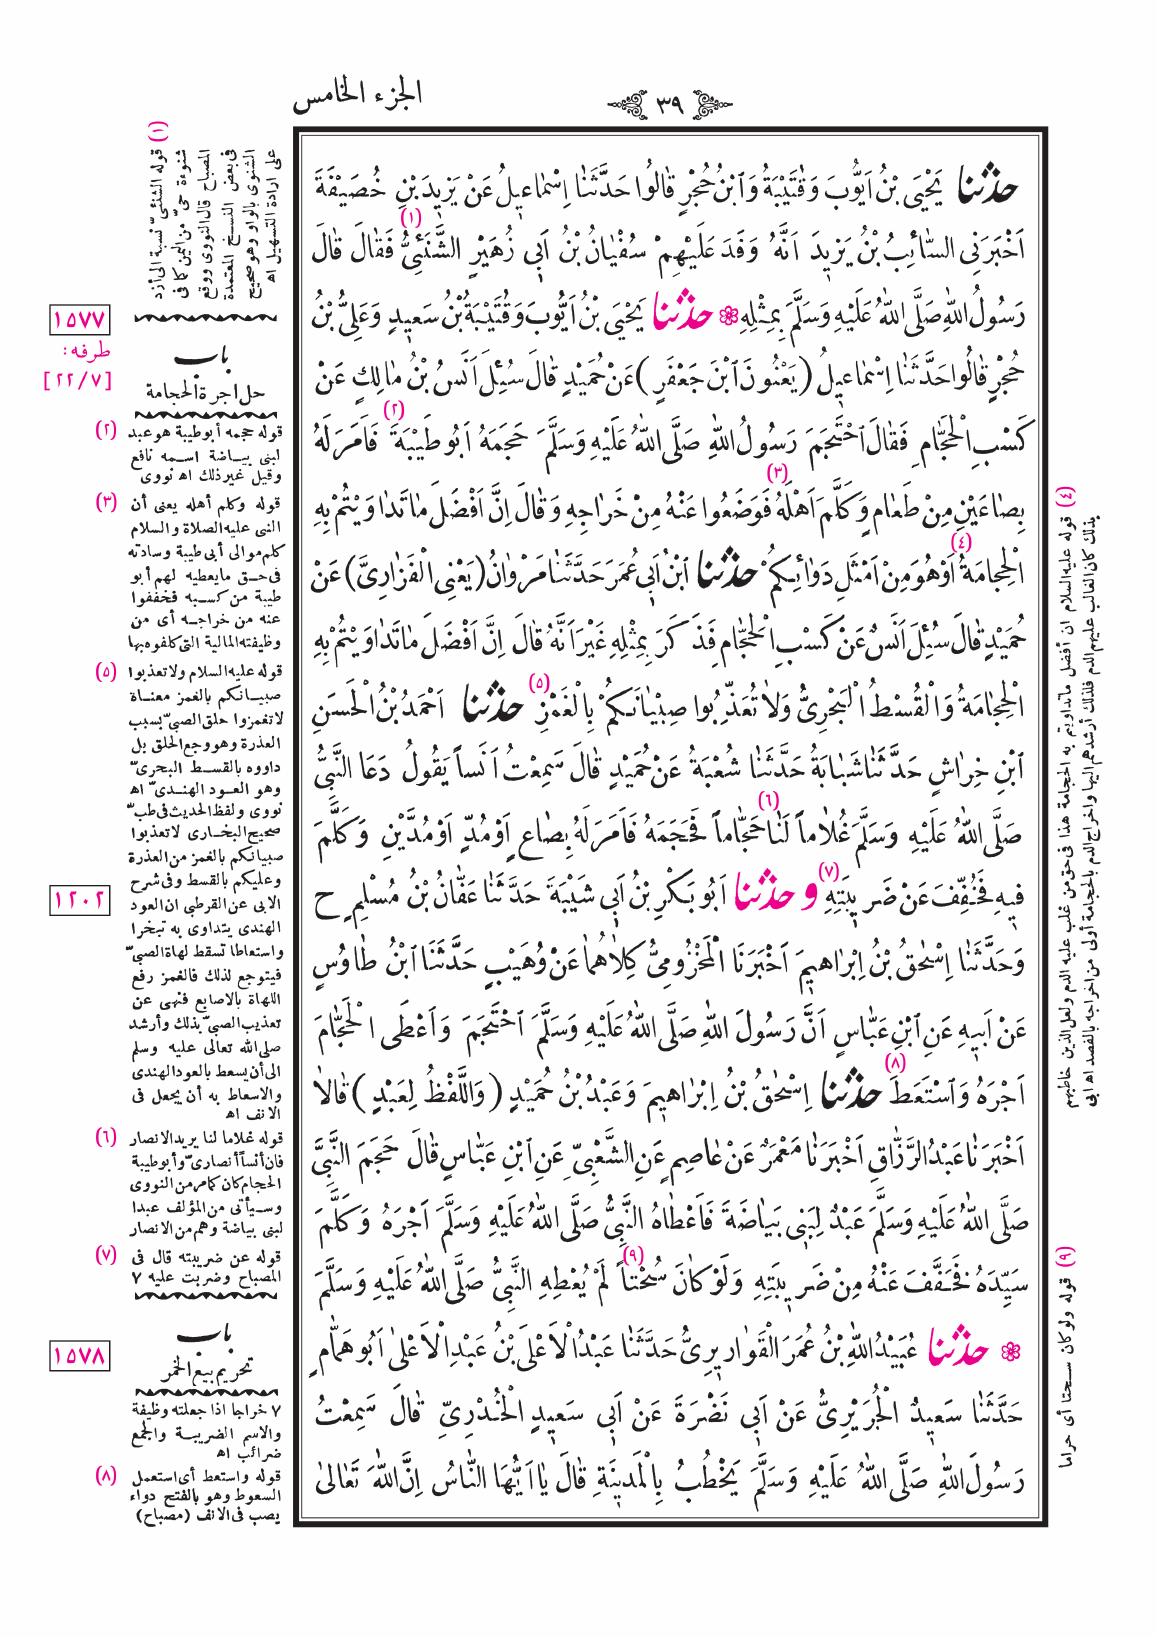 الجزء الخامس
٣٩
حدثنا يَحْيَى بْنُ اَيُّوبَ وَقُتَيْبَةُ وَابْنُ حُجْرٍ قَالُوا حَدَّثَنَا اِسْمَاعِيلُ عَنْ يَزِيدَ بْنِ خُصَيْفَةَ
اَخْبَرَنِى السَّائِبُ بْنُ يَزِيدَ اَنَّهُ وَفَدَ عَلَيْهِمْ سُفْيَانُ بْنُ اَبِى زُهَيْرٍ الشَّنَئِىُّ (١) فَقَالَ قَالَ
رَسُولُ اللهِ صَلَّى اللهُ عَلَيْهِ وَسَلَّمَ بِمِثْلِهِ ۞ حدثنا يَحْيَى بْنُ اَيُّوبَ وَقُتَيْبَةُ بْنُ سَعِيدٍ وَعَلِىُّ بْنُ
حُجْرٍ قَالُوا حَدَّثَنَا اِسْمَاعِيلُ (يَعْنُونَ ابْنَ جَعْفَرٍ) عَنْ حُمَيْدٍ قَالَ سُئِلَ اَنَسُ بْنُ مَالِكٍ عَنْ
كَسْبِ الْحَجَّامِ فَقَالَ احْتَجَمَ رَسُولُ اللهِ صَلَّى اللهُ عَلَيْهِ وَسَلَّمَ حَجَمَهُ اَبُو طَيْبَةَ (٢) فَاَمَرَ لَهُ
بِصَاعَيْنِ مِنْ طَعَامٍ وَكَلَّمَ اَهْلَهُ (٣) فَوَضَعُوا عَنْهُ مِنْ خَرَاجِهِ وَقَالَ اِنَّ اَفْضَلَ مَا تَدَاوَيْتُمْ بِهِ
الْحِجَامَةُ (٤) اَوْ هُوَ مِنْ اَمْثَلِ دَوَائِكُمْ حدثنا ابْنُ اَبِى عُمَرَ حَدَّثَنَا مَرْوَانُ (يَعْنِى الْفَزَارِىَّ) عَنْ
حُمَيْدٍ قَالَ سُئِلَ اَنَسٌ عَنْ كَسْبِ الْحَجَّامِ فَذَكَرَ بِمِثْلِهِ غَيْرَ اَنَّهُ قَالَ اِنَّ اَفْضَلَ مَا تَدَاوَيْتُمْ بِهِ
الْحِجَامَةُ وَالْقُسْطُ الْبَحْرِىُّ وَلَا تُعَذِّبُوا صِبْيَانَكُمْ بِالْغَمْزِ (٥) حدثنا اَحْمَدُ بْنُ الْحَسَنِ
ابْنِ خِرَاشٍ حَدَّثَنَا شَبَابَةُ حَدَّثَنَا شُعْبَةُ عَنْ حُمَيْدٍ قَالَ سَمِعْتُ اَنَساً يَقُولُ دَعَا النَّبِىُّ
صَلَّى اللهُ عَلَيْهِ وَسَلَّمَ غُلَاماً لَنَا (٦) حَجَّاماً فَحَجَمَهُ فَاَمَرَ لَهُ بِصَاعٍ اَوْ مُدٍّ اَوْ مُدَّيْنِ وَكَلَّمَ
فِيهِ فَخُفِّفَ عَنْ ضَرِيبَتِهِ (٧) و حدثنا اَبُو بَكْرِ بْنُ اَبِى شَيْبَةَ حَدَّثَنَا عَفَّانُ بْنُ مُسْلِمٍ ح
وَحَدَّثَنَا اِسْحٰقُ بْنُ اِبْرَاهِيمَ اَخْبَرَنَا الْمَخْزُومِىُّ كِلَاهُمَا عَنْ وُهَيْبٍ حَدَّثَنَا ابْنُ طَاوُسٍ
عَنْ اَبِيهِ عَنِ ابْنِ عَبَّاسٍ اَنَّ رَسُولَ اللهِ صَلَّى اللهُ عَلَيْهِ وَسَلَّمَ احْتَجَمَ وَاَعْطَى الْحَجَّامَ
اَجْرَهُ وَاسْتَعَطَ (٨) حدثنا اِسْحٰقُ بْنُ اِبْرَاهِيمَ وَعَبْدُ بْنُ حُمَيْدٍ (وَاللَّفْظُ لِعَبْدٍ) قَالَا
اَخْبَرَنَا عَبْدُ الرَّزَّاقِ اَخْبَرَنَا مَعْمَرٌ عَنْ عَاصِمٍ عَنِ الشَّعْبِىِّ عَنِ ابْنِ عَبَّاسٍ قَالَ حَجَمَ النَّبِىَّ
صَلَّى اللهُ عَلَيْهِ وَسَلَّمَ عَبْدٌ لِبَنِى بَيَاضَةَ فَاَعْطَاهُ النَّبِىُّ صَلَّى اللهُ عَلَيْهِ وَسَلَّمَ اَجْرَهُ وَكَلَّمَ
سَيِّدَهُ فَخَفَّفَ عَنْهُ مِنْ ضَرِيبَتِهِ وَلَوْ كَانَ سُحْتاً (٩) لَمْ يُعْطِهِ النَّبِىُّ صَلَّى اللهُ عَلَيْهِ وَسَلَّمَ
۞ حدثنا عُبَيْدُ اللهِ بْنُ عُمَرَ الْقَوَارِيرِىُّ حَدَّثَنَا عَبْدُ الْاَعْلَى بْنُ عَبْدِ الْاَعْلَى اَبُو هَمَّامٍ
حَدَّثَنَا سَعِيدٌ الْجُرَيْرِىُّ عَنْ اَبِى نَضْرَةَ عَنْ اَبِى سَعِيدٍ الْخُدْرِىِّ قَالَ سَمِعْتُ
رَسُولَ اللهِ صَلَّى اللهُ عَلَيْهِ وَسَلَّمَ يَخْطُبُ بِالْمَدِينَةِ قَالَ يَا اَيُّهَا النَّاسُ اِنَّ اللهَ تَعَالَى
(١) قوله الشنئىّ نسبة الى أزد
شنوءة حىّ من اليمن كما فى
المصباح قال النووى ووقع
فى بعض النسخ المعتمدة
الشنوى بالواو وهو صحيح
على ارادة التسهيل اه
١٥٧٧
طرفه:
[٢٢/٧]
باب
حل اجرة الحجامة
(٢) قوله حجمه أبو طيبة هو عبد
لبنى بياضة اسمه نافع
وقيل غير ذلك اه نووى
(٣) قوله وكلم أهله يعنى أن
النبى عليه الصلاة والسلام
كلم موالى أبى طيبة وسادته
فى حق ما يعطيه لهم أبو
طيبة من كسبه فخففوا
عنه من خراجه أى من
وظيفته المالية التى كلفوه بها
(٥) قوله عليه السلام ولا تعذبوا
صبيانكم بالغمز معناه
لا تغمزوا حلق الصبىّ بسبب
العذرة وهو وجع الحلق بل
داووه بالقسط البحرىّ
وهو العود الهندىّ اه
نووى ولفظ الحديث فى طبّ
صحيح البخارى لا تعذبوا
صبيانكم بالغمز من العذرة
وعليكم بالقسط وفى شرح
الابى عن القرطبى ان العود
الهندى يتداوى به تبخرا
واستعاطا تسقط لهاة الصبىّ
فيتوجع لذلك فالغمز رفع
اللهاة بالاصابع فنهى عن
تعذيب الصبىّ بذلك وأرشد
صلى الله تعالى عليه وسلم
الى أن يسعط بالعود الهندى
والاسعاط به أن يجعل فى
الانف اه
١٢٠٢
(٦) قوله غلاما لنا يريد الانصار
فان أنساً أنصارىّ وأبو طيبة
الحجام كان كما مر من النووى
وسيأتى من المؤلف عبدا
لبنى بياضة وهم من الانصار
(٧) قوله عن ضريبته قال فى
المصباح وضربت عليه ٧
باب
تحريم بيع الخمر
١٥٧٨
٧ خراجا اذا جعلته وظيفة
والاسم الضريبة والجمع
ضرائب اه
(٨) قوله واستعط أى استعمل
السعوط وهو بالفتح دواء
يصب فى الانف (مصباح)
(٤) قوله عليه السلام ان أفضل ما تداويتم به الحجامة هذا فى حق من غلب عليه الدم ولعل الذين خاطبهم
بذلك كان الغالب عليهم الدم فلذلك أرشدهم اليها واخراج الدم بالحجامة أولى من اخراجه بالفصد اه ابى
(٩) قوله ولو كان سحتا أى حراما